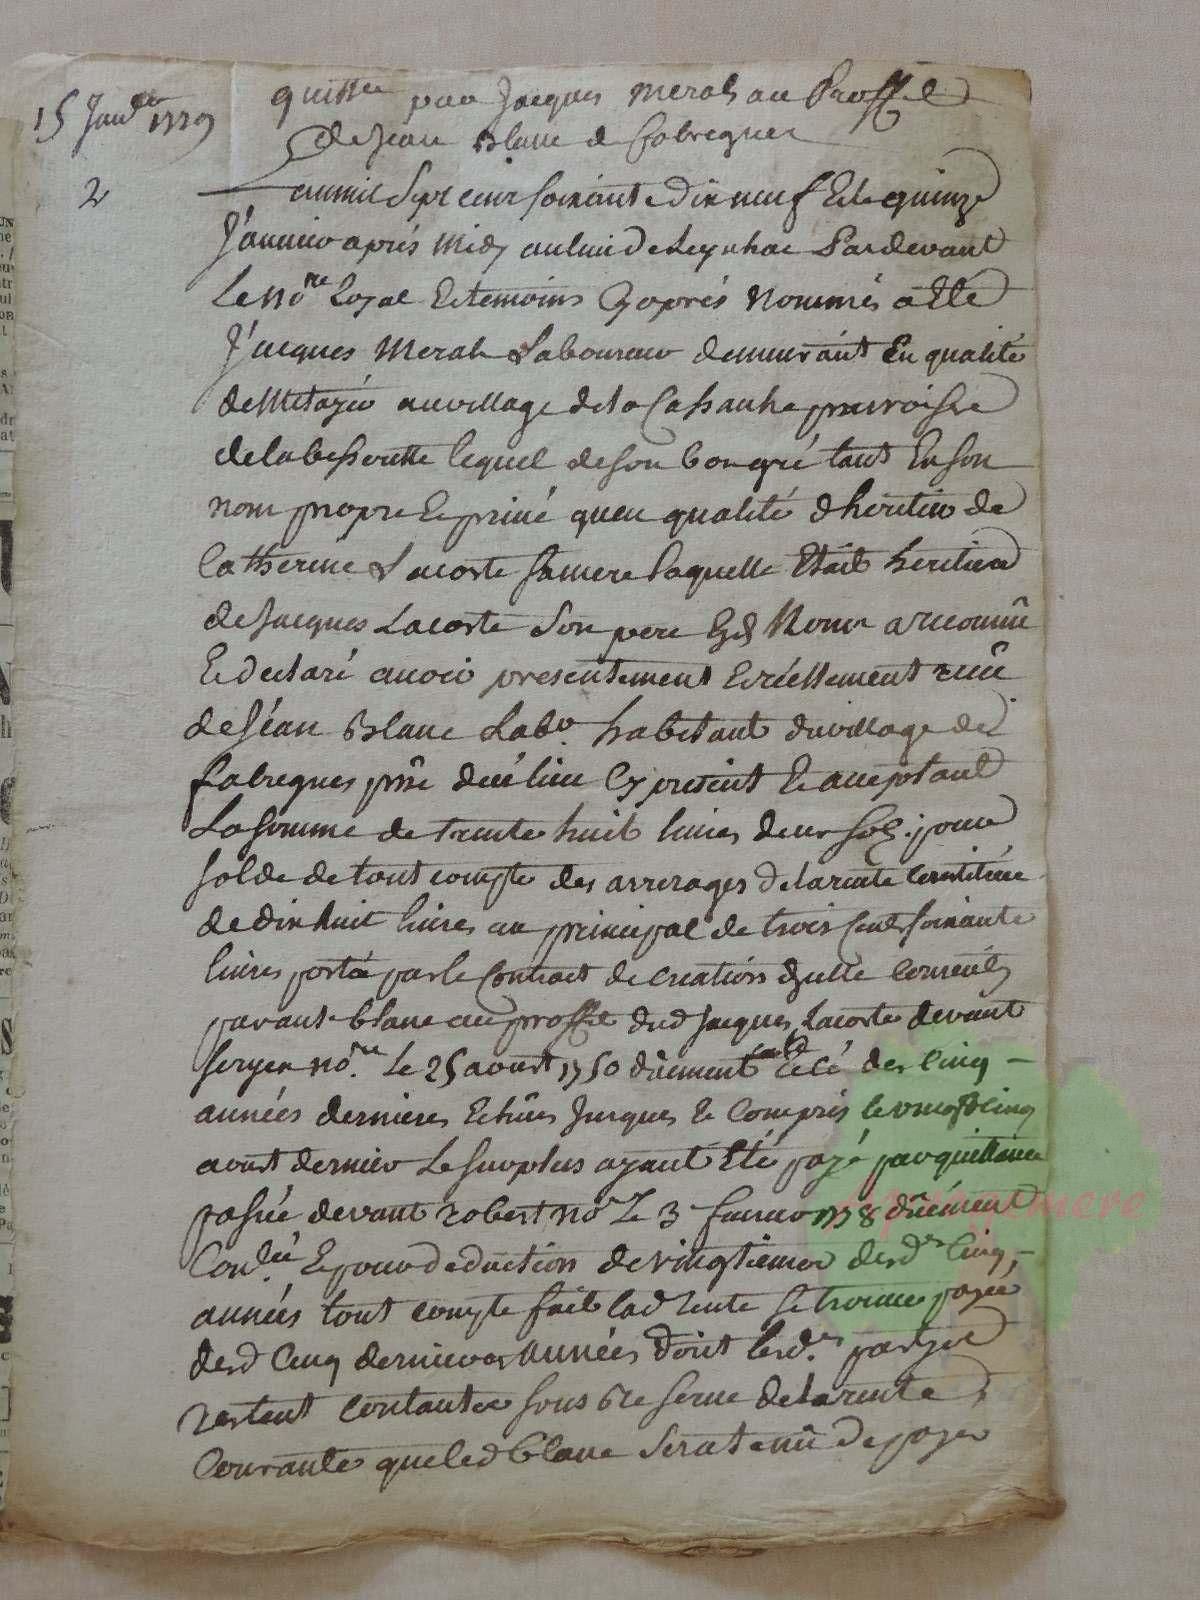 15 Janv.er 1779
2
quittce par Jacques Merals au Proffit
de Jean Blanc de fabregues
L'an mil Sept cent soixante dix neuf Et le quinze
Janvier aprés Midy au lieu de Leynhac Pardevant
Le No.re Royal Et temoins Cy aprés Nommés a Eté
Jacques Merals Laboureur demeurant En qualité
de Metayer au village de la Cassanhe parroisse
de labesserette lequel de son bon gré tant En son
nom propre Et privé qu'en qualité d'heritier de
Catherine Lacoste sa mere laquelle Etait heritiere
de Jacques Lacoste Son pere a reconnû
Et declaré avoir presentement Et réellement reçû
de Jéan Blanc Lab.r habitant du village de
fabregues p.sse du.d lieu Cy present Et acceptant
La Somme de trente huit livres deux Sols pour
solde de tout compte des arrerages de la rente Constituée
de dix huit livres au principal de trois Cents soixante
livres porté par le Contract de creation d'icelle Consenti
par aut. blanc au proffit dud Jacques Lacoste devant
No.re Le 25 aoust 1750 dûement des Cinq
années dernieres Echûes Jusques Et Compris le vingt Cinq
aoust dernier Le surplus ayant Eté payé par quittance
passée devant robert No.re Le 3 fevrier 1778 dûement
Con.lée Et pour deduction de vingtieme desd.es Cinq
années tout compte fait lad rente se trouve payée
desd Cinq dernieres années dont lesd.es parties
restent contantes sous reserve de la rente
Courante que led blanc sera tenû de payer
geneagemere